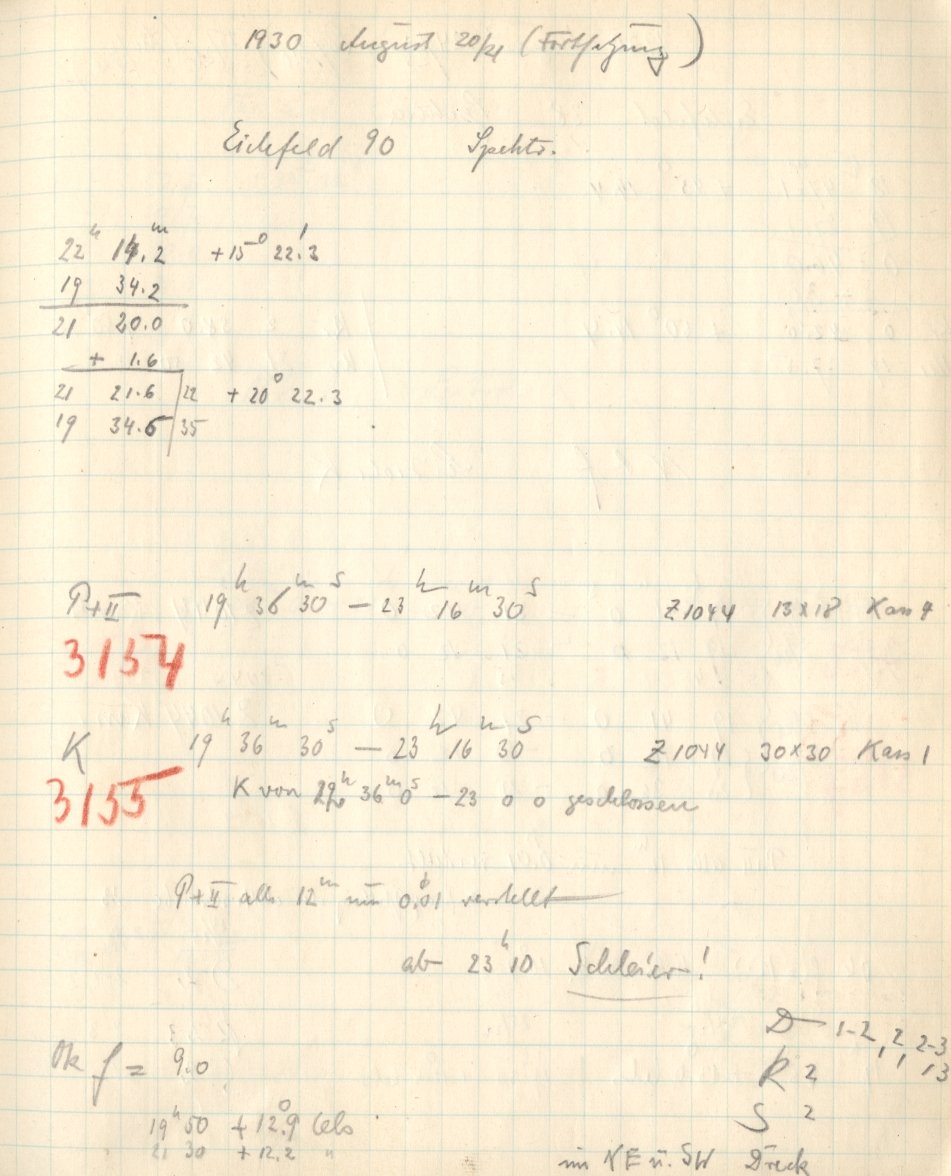 1930 August 20/21 (Fortsetzung)
Eichfeld 90 Spektr.
22ʰ 14.2ᵐ +15° 22.'3
19 34.2
21 20.0
+ 1.6
21 21.6 22 +20° 22.3
19 34.6 35
P+II 19ʰ 36ᵐ 30ˢ – 23ʰ 16ᵐ 30ˢ Z1044 13x18 Kass 4
3154
K 19ʰ 36ᵐ 30ˢ – 23ʰ 16ᵐ 30ˢ Z1044 30x30 Kass 1
3155
K von 22ʰ 36ᵐ 0ˢ – 23 0 0 geschlossen
P+II alle 12ᵐ um 0.01 verstellt
ab 23ʰ10 Schleier!
D 1-2, 2, 2-3, 3
Ok f = 9.0
R 2
S 2
19ʰ50 +12.°9 Cels
21 30 +12.2 "
im NE u. SW Dreck